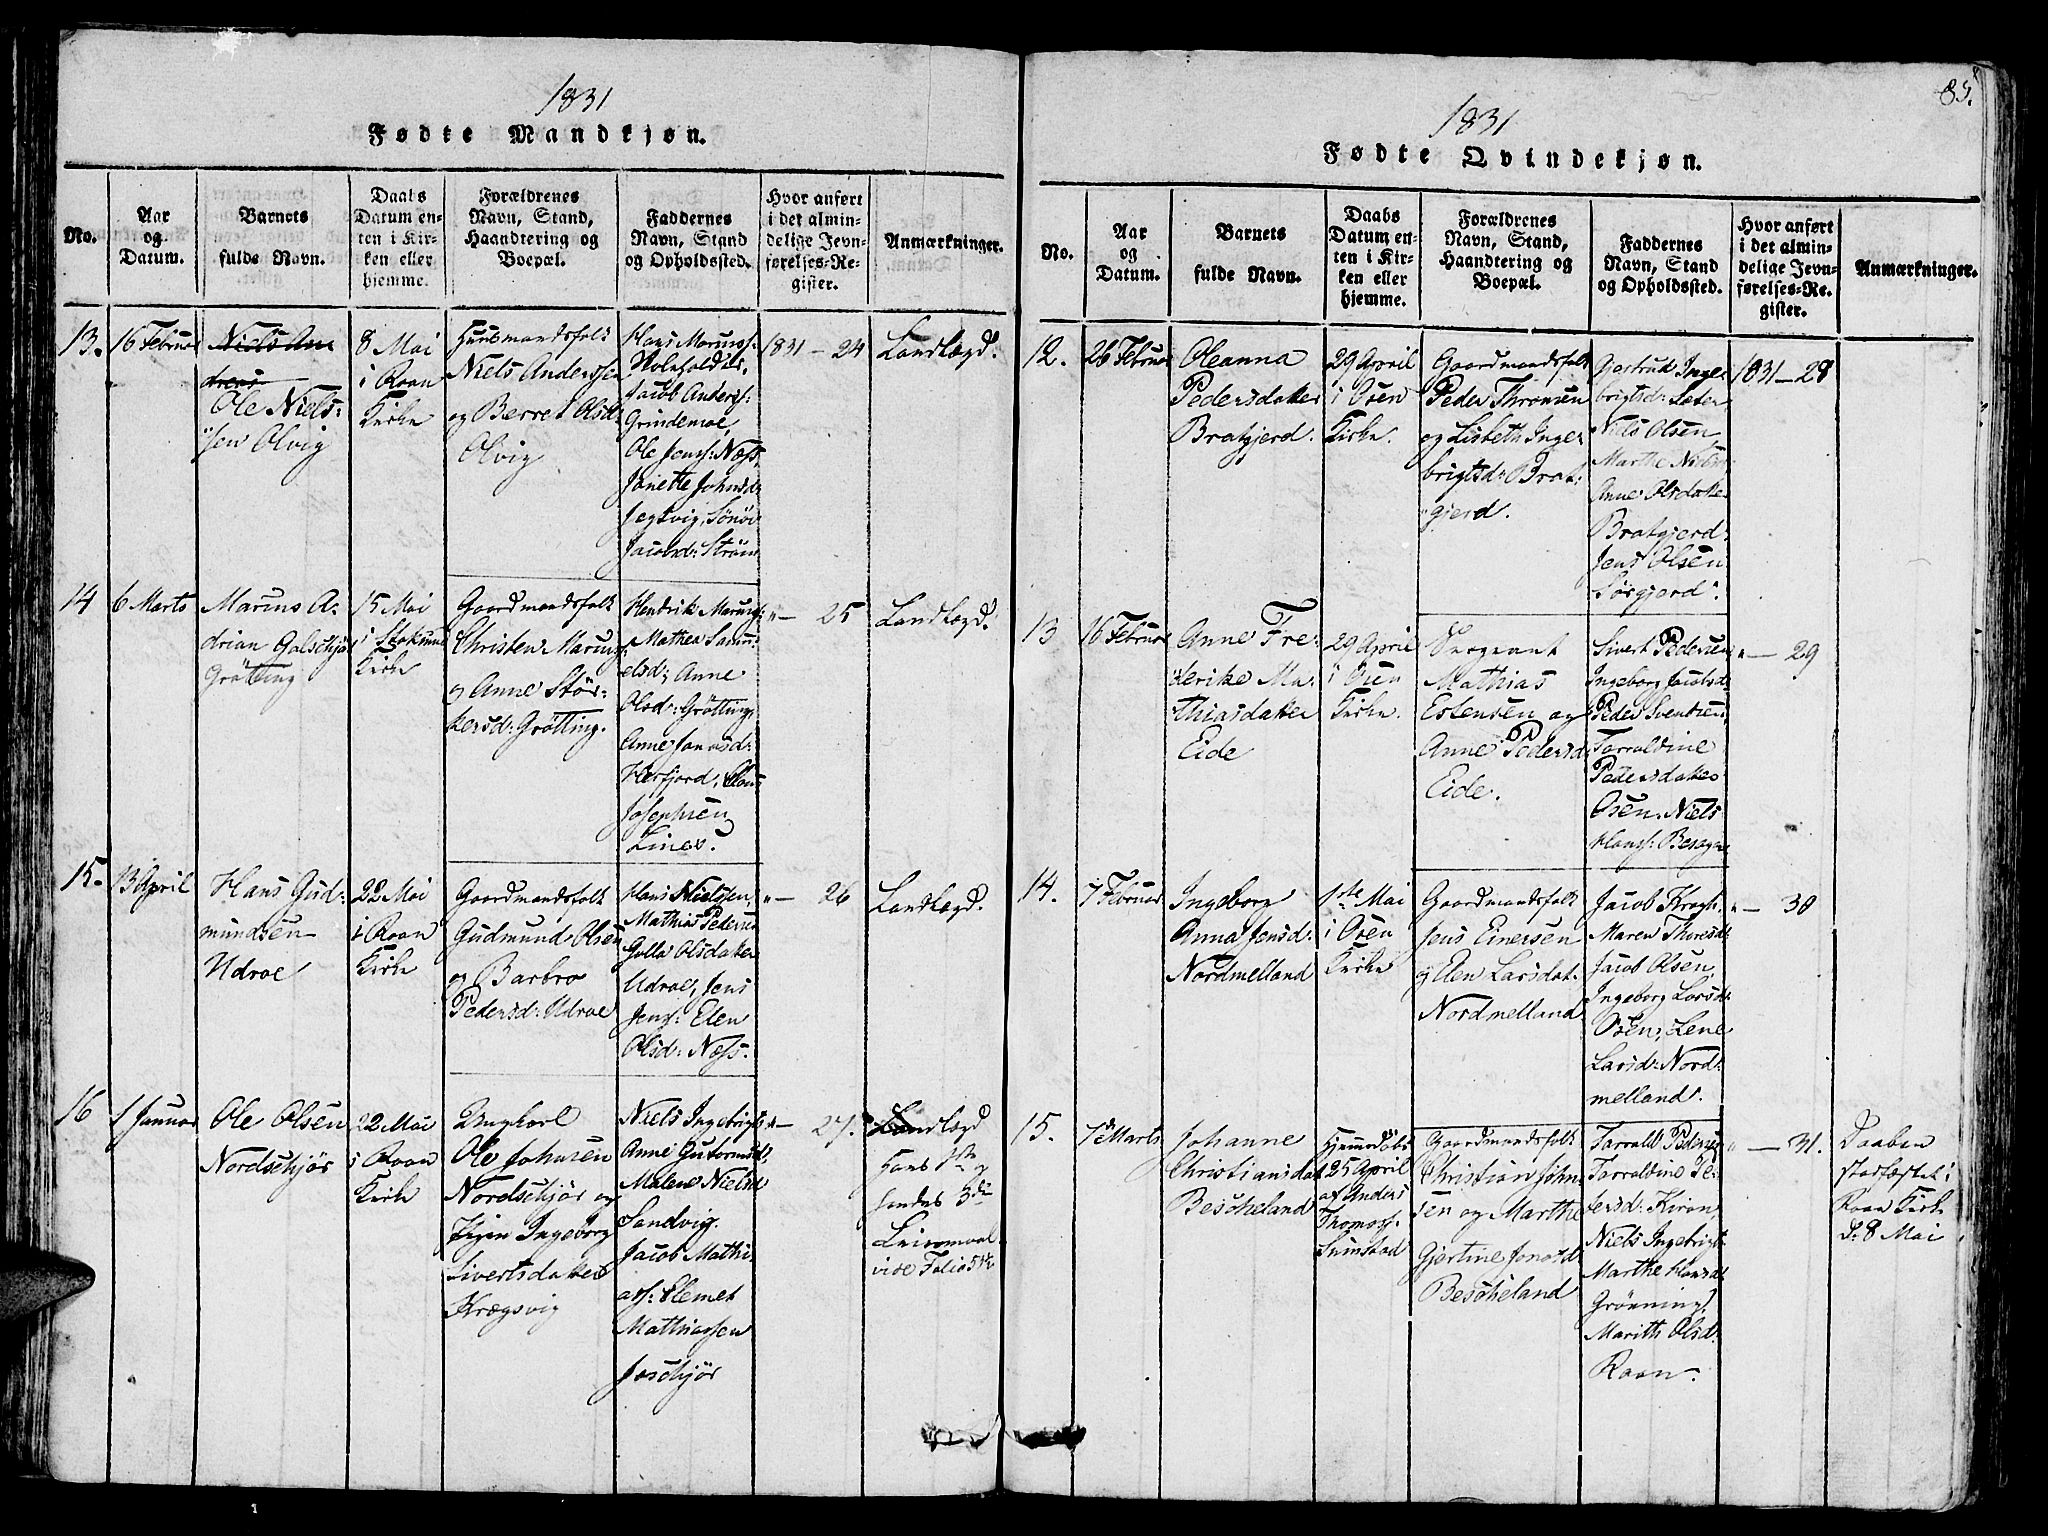 1831
Fødte Mandkjøn.
No.
Aar
og
Datum.
Barnets
fulde Navn.
Daabs
Datum en-
ten i Kir-
ken eller
hjemme.
Forældrenes
Navn, Stand,
Haandtering og
Boepæl.
Faddernes
Navn, Stand
og Opholdssted.
Hvor anført
i det almin-
delige Jevn-
førelses-Re-
gister.
Anmærkninger.
13.
16 Februar
Niels An
dreas
Ole Niels:
sen Olvig
8 Mai
i Roan
Kirke
Huusmandsfolk
Niels Anderssen
og Berret Olsd:
Olvig
Hans
Jacob Anderss:
Grindemoe,
Ole Jenss: Næss,
Janette Johnsd:
Jegtvig, Sönöv
Jacobsd: Ström
1831 — 24
Landlægd.
14
6 Marts
Marius A-
drian
Grötting
15 Mai
i Stoksund
Kirke
Gaardmandsfolk
Christen
og Anne Stör-
kersd: Grötting.
Hendrik
Mathea Samu-
elsd: Anne
Olsd: Grötting,
Anne Jonasd:
Herfjord,
Josephsen
Lines.
" — 25
Landlægd.
15.
13 April
Hans Gud-
mundsen
Udroe
22 Mai
i Roan
Kirke
Gaardmandsfolk
Gudmund Olsen
og Barbro
Pedersd: Udroe
Hans Nielssen,
Mathias Peders:
Golla Olsdatter
Udroe, Jens
Jenss: Elen
Olsd: Næss.
" — 26
Landlægd.
16
1 Januar
Ole Olsen
Nordschjör
22 Mai
i Roan
Kirke
Ungkarl
Ole Johnsen
Nordschjör og
Pigen Ingeborg
Sivertsdatter
Krægsvig
Niels Ingebrigts:
Anne Gutormsd:
Malene Nielsd
Sandvig.
Jacob Mathi-
ass: Elemet
Mathiassen
Joschjör
" — 27.
Landlægd
Hans 1ste og
hendes 3die
Leiermaal
vide Folio 54
85.
1831
Fødte Qvindekjøn.
No.
Aar
og
Datum.
Barnets
fulde Navn.
Daabs
Datum en-
ten i Kir-
ken eller
hjemme.
Forældrenes
Navn, Stand,
Haandtering og
Boepæl.
Faddernes
Navn, Stand
og Opholdssted.
Hvor anført
i det almin-
delige Jevn-
førelses-Re-
gister.
Anmærkninger.
12.
26 Februar
Oleanna
Pedersdatter
Bratgjerd.
29 April
i Osen
Kirke.
Gaardmandsfolk
Peder Thronsen
og Lisbeth Inge-
brigtsd: Brat:
gjerd.
Gjertrud Inge-
brigtsd: Sæter
Niels Olsen,
Marthe Nielsd
Anne Olsdatter
Bratgjerd.
Jens Olsen
Sörgjerd.
1831 — 28
13
16 Februar
Anne Fre-
derike Ma-
thiasdatter
Eide
29 April
i Osen
Kirke.
Sergeant
Mathias
Estensen og
Anne Pedersd
Eide.
Sivert Pedersen
Ingeborg Jacobsd:
Peder Svendsen
Torroldine
Pedersdatter
Osen. Niels
Hanss: Besagen
" — 29
14.
7 Februar
Ingeborg
Anna Jensd:
Nordmelland
1ste Mai
i Osen
Kirke
Gaardmandsfolk
Jens Einersen
og Elen Larsdat.
Nordmelland
Jacob Kragh.
Maren Thoresd:
Jacob Olsen,
Ingeborg Larsd:
Osen, Lene
Larsd: Nord:
melland.
" — 30
15.
7de Marts
Johanne
Christiansdat
Bescheland
Hjemmedöbt
25 April
af Anders
Thomass.
Sumstad
Gaardmandsfolk
Christian John-
sen og Marthe
Gjertine Jonasd
Bescheland
Torrold Pedersen
Torroldine Pe-
dersd: Kiran
Niels Ingebrigts
Marthe Hansd
Grönning,
Marith Olsd:
Roan.
" — 31.
Daaben
stadfæstet i
Roan Kirke
d: 8 Mai